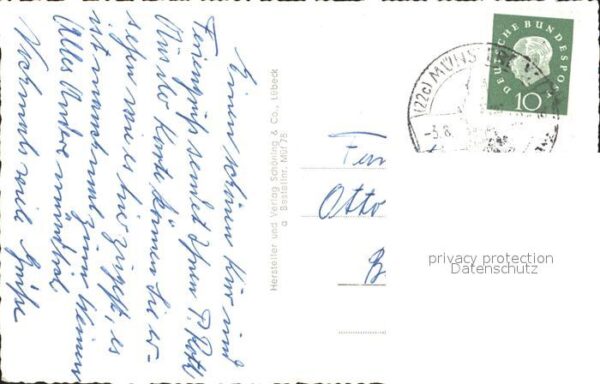 Einen schönen Kur und
Feriengruß sendet Ihnen P. Roth
Aus der Karte können Sie er-
sehen wie es hier zugeht, es
ist manchmal zum Weinen
Alles Andere mündlich
Nochmals viele Grüße
Hersteller und Verlag Schöning & Co., Lübeck
a Bestellnr. Mü f 78
DEUTSCHE BUNDESPOST
10
(22c) MÜNSTER
-3.8.
Otto
B
privacy protection
Datenschutz